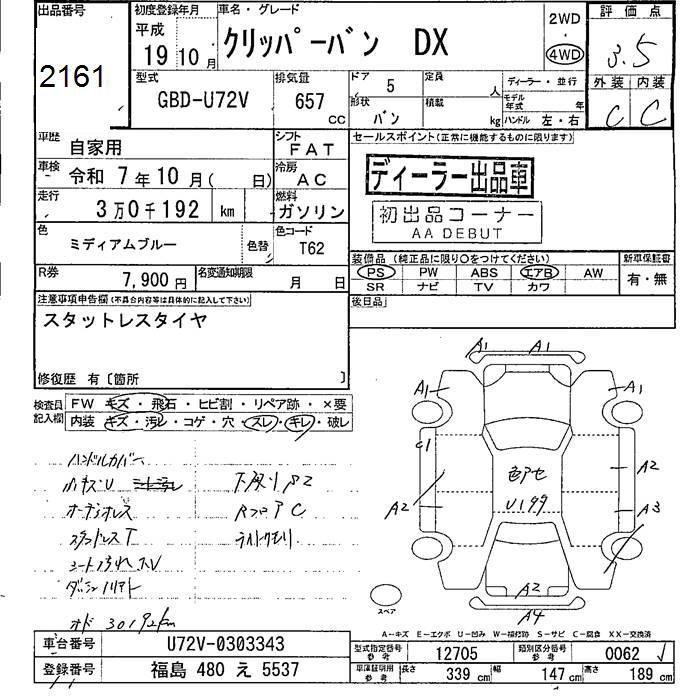 出品番号
2161
初度登録年月
平成
19年10月
車名・グレード
クリッパーバン DX
2WD
・
4WD
評価点
3.5
外装 内装
C C
型式
GBD-U72V
排気量
657 CC
ドア 5
定員 人
形状 バン
積載 kg
ディーラー・並行
モデル年式 年
ハンドル 左・右
車歴 自家用
シフト FAT
車検 令和 7年10月( 日)
冷房 AC
走行 3万0千192 km
燃料 ガソリン
色 ミディアムブルー 色替
色コード T62
R券 7,900円
名変通知期限 月 日
セールスポイント(正常に機能するものに限ります)
ディーラー出品車
初出品コーナー
AA DEBUT
装備品(純正品に限り○をつけてください)
PS PW ABS エアB AW
SR ナビ TV カワ
新車保証書
有・無
後日品
注意事項申告欄(不具合内容等は具体的に記入して下さい)
スタットレスタイヤ
修復歴 有〔箇所 〕
検査員記入欄
FW キズ・飛石・ヒビ割・リペア跡・×要
内装 キズ・汚レ・コゲ・穴・スレ・キレ・破レ
ハンドルカバー
オーディオレス
オド 30192km
A1 A1
A1 A1
C1
A2 A2
A3
U1
A2
A4
スペア
A-キズ E-エクボ U-凹み W-補修跡 S-サビ C-腐食 XX-交換済
車台番号 U72V-0303343
登録番号 福島 480 え 5537
型式指定番号 参考 12705
類別区分番号 参考 0062
車庫証明用 参考 長さ 339 cm 幅 147 cm 高さ 189 cm